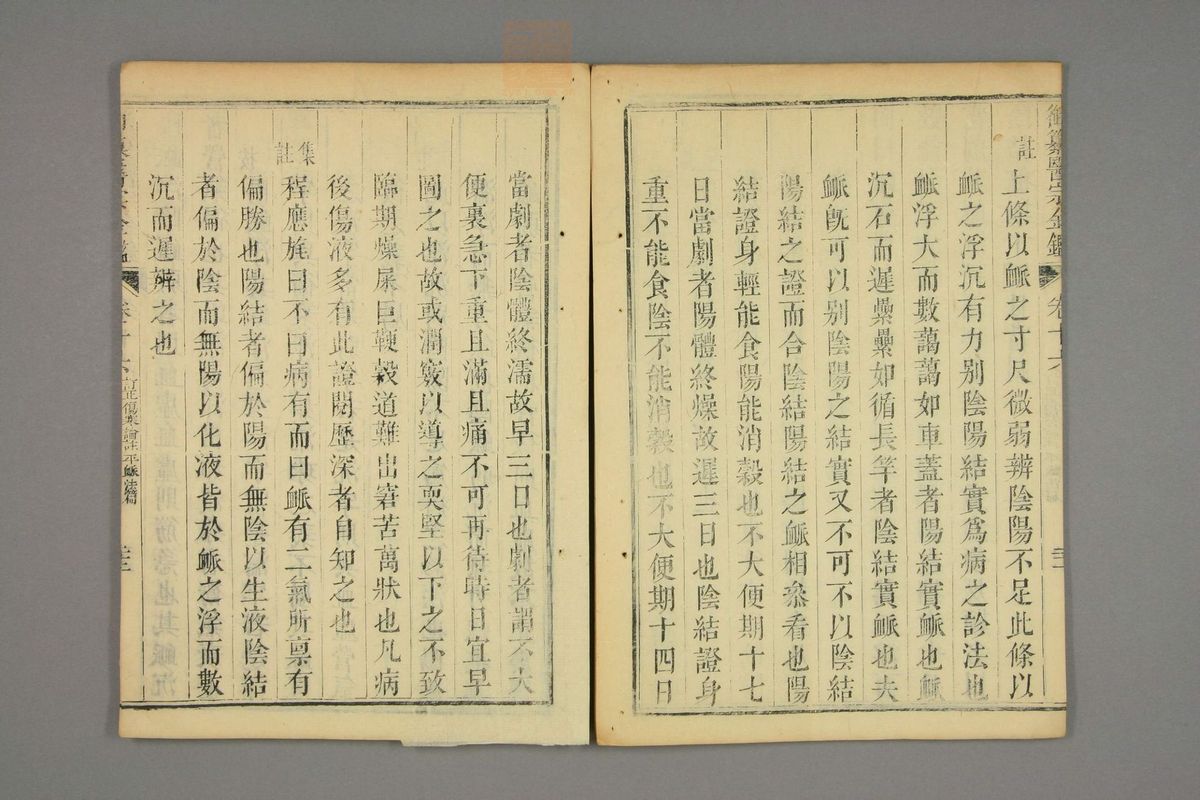 御纂醫宗金鑑 卷十六
註
上條以䘑之寸尺微弱辨陰陽不足此條以
䘑之浮沉有力别陰陽結實爲病之診法也
䘑浮大而數藹藹如車蓋者陽結實䘑也䘑
沉石而遲纍纍如循長竿者陰結實䘑也夫
䘑旣可以别陰陽之結實又不可不以陰結
陽結之證而合陰結陽結之䘑相叅看也陽
結證身輕能食陽能消穀也不大便期十七
日當劇者陽體終燥故遲三日也陰結證身
重不能食陰不能消穀也不大便期十四日
當劇者陰體終濡故早三日也劇者謂不大
便裏急下重且滿且痛不可再待時日宜早
圖之也故或潤竅以導之耎堅以下之不致
臨期燥屎巨鞕穀道難出窘苦萬狀也凡病
後傷液多有此證閱歷深者自知之也
集註
程應旄曰不曰病有而曰䘑有二氣所禀有
偏勝也陽結者偏於陽而無陰以生液陰結
者偏於陰而無陽以化液皆於䘑之浮而數
沉而遲辨之也
訂正傷寒論註平䘑法篇